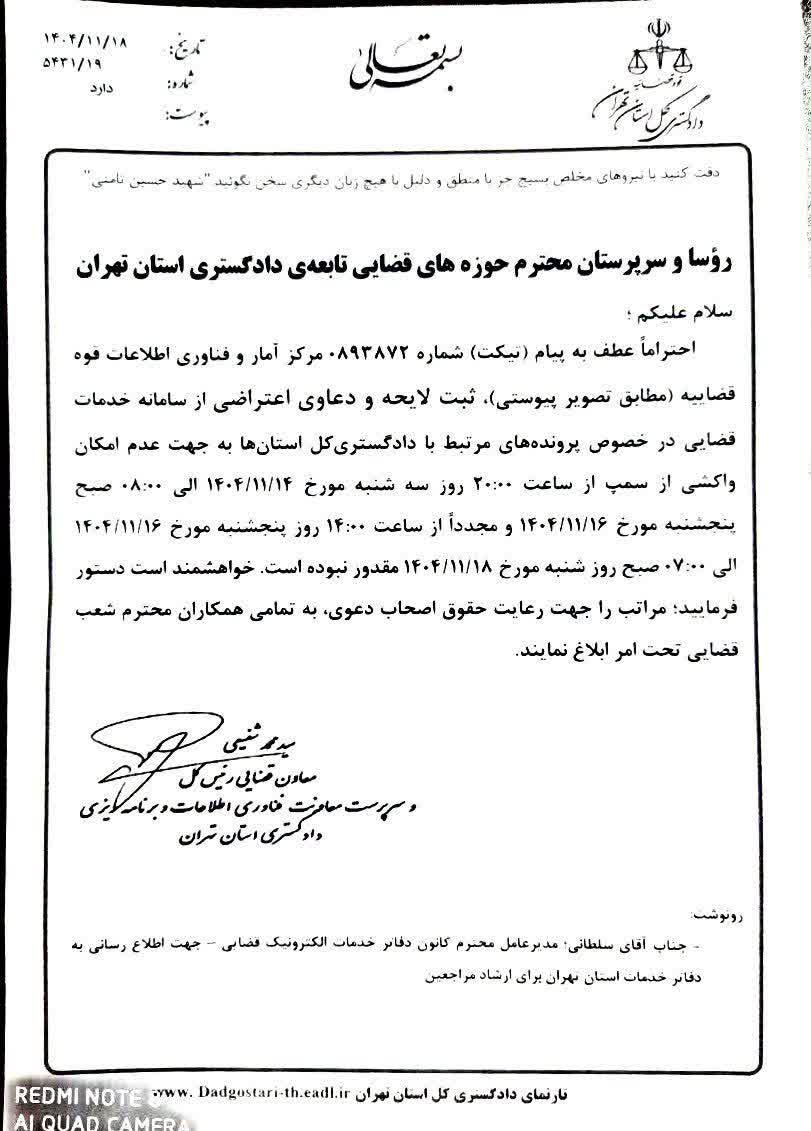 بسمه تعالی
قوه قضاییه
دادگستری کل استان تهران
تاریخ: ۱۴۰۴/۱۱/۱۸
شماره: ۵۴۳۱/۱۹
پیوست: دارد
دقت کنید با نیروهای مخلص بسیج جز با منطق و دلیل با هیچ زبان دیگری سخن نگوئید "شهید حسین
رؤسا و سرپرستان محترم حوزه های قضایی تابعه‌ی دادگستری استان تهران
سلام علیکم ؛
احتراماً عطف به پیام (تیکت) شماره ۰۸۹۳۸۷۲ مرکز آمار و فناوری اطلاعات قوه
قضاییه (مطابق تصویر پیوستی)، ثبت لایحه و دعاوی اعتراضی از سامانه خدمات
قضایی در خصوص پرونده‌های مرتبط با دادگستری‌کل استان‌ها به جهت عدم امکان
واکشی از سمپ از ساعت ۲۰:۰۰ روز سه شنبه مورخ ۱۴۰۴/۱۱/۱۴ الی ۰۸:۰۰ صبح
پنجشنبه مورخ ۱۴۰۴/۱۱/۱۶ و مجدداً از ساعت ۱۴:۰۰ روز پنجشنبه مورخ ۱۴۰۴/۱۱/۱۶
الی ۰۷:۰۰ صبح روز شنبه مورخ ۱۴۰۴/۱۱/۱۸ مقدور نبوده است. خواهشمند است دستور
فرمایید؛ مراتب را جهت رعایت حقوق اصحاب دعوی، به تمامی همکاران محترم شعب
قضایی تحت امر ابلاغ نمایند.
سید محمد
معاون قضایی رئیس کل
و سرپرست معاونت فناوری اطلاعات و برنامه ریزی
دادگستری استان تهران
رونوشت:
- جناب آقای سلطانی؛ مدیرعامل محترم کانون دفاتر خدمات الکترونیک قضایی - جهت اطلاع رسانی به
دفاتر خدمات استان تهران برای ارشاد مراجعین
تارنمای دادگستری کل استان تهران www. Dadgostari-th.eadl.ir
REDMI NOTE
AI QUAD CAMERA